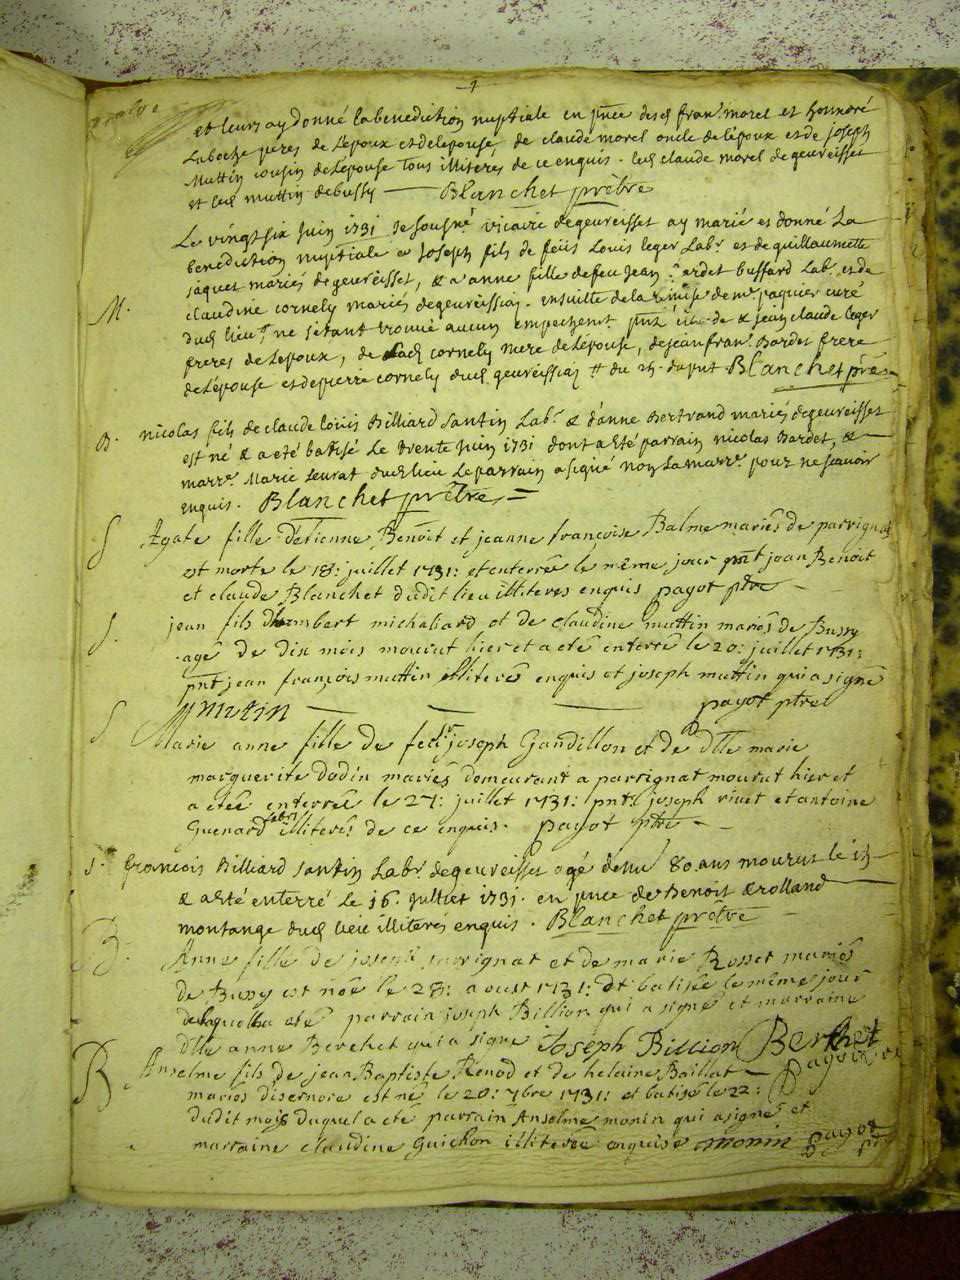 et leurs ay donné la benediction nuptiale en pnce desd fran. morel et honnoré
Laboche peres de L'epoux et de lepouse, de claude morel oncle de lépoux et de joseph
Muttin cousin de L'epouse tous illiteres de ce enquis. led claude morel de geureisset
et led muttin de bussy Blanchet prêbre
Le vingt six juin 1731 je sousné vicaire de geureisset ay marié et donné La
benediction nuptiale a joseph fils de feüs Louis leger Labr. et de guillaumette
jaquet mariés de geureisset, & a anne fille de feu jean bardet buffard Labr. et de
M. claudine cornely mariés de geureissiaz. ensuitte de la remise de mr. paquier curé
dud lieu, ne s'etant trouvé aucun empechemt. pnt & jean claude leger
freres de L'epoux, de lad cornely mere de L'epouse, de jean fran. Bardet frere
de L'epouse et de pierre cornely dud geureissiaz Blanchet prê
B. nicolas fils de claude loüis Billiard santin Labr. & d'anne Bertrand mariés de geureisset
est né & a eté batisé Le trente juin 1731 dont a eté parrain nicolas Bardet, &
marre. Marie Leurat dud lieu Le parrain a signé non La marre. pour ne scavoir
enquis. Blanchet prêbre
S Agate fille d'Etienne Benoit et jeanne françoise Balme mariés de parrignat
est morte le 18: juillet 1731: et enterrée le même jour pnt jean Benoit
et claude Blanchet dudit lieu illiteres enquis payot ptre
S. jean fils d'humbert michaliard et de claudine muttin mariés de Bussy
agé de dix mois mourut hier et a eté enterré le 20: juillet 1731:
pnt jean françois muttin illiteres enquis et joseph muttin qui a signé
Mutin payot ptre
S Marie anne fille de feu sr joseph Gandillon et de Dlle marie
marguerite dodin mariés demeurant a parrignat mourut hier et
a eteé enterreé le 27: juillet 1731: pnt: joseph rivet et antoine
Guenard illiterés de ce enquis. payot ptre
S. françois Billiard santin Labr. de geureisset agé de 80 ans mourut le 15
& a eté enterré Le 16. juillet 1731. en pnce de benoit & rolland
montange dud lieu illiterés enquis. Blanchet prêtre
B. Anne fille de joseph parrignat et de marie Rosset mariés
de Bussy est neé le 28: aoust 1731: et batiseé le même jour
de laquelle a eté parrain joseph Billion qui a signé et marraine
Dlle anne Berthet qui a signé Joseph Billion Berthet
B Anselme fils de jean Baptiste Renod et de helaine Baillat payot
mariés disernore est né le 20: 7bre 1731: et batisé le 22:
dudit mois duquel a eté parrain Anselme monin qui a signé et
marraine claudine Guichon illiteree enquise monin payot ptre